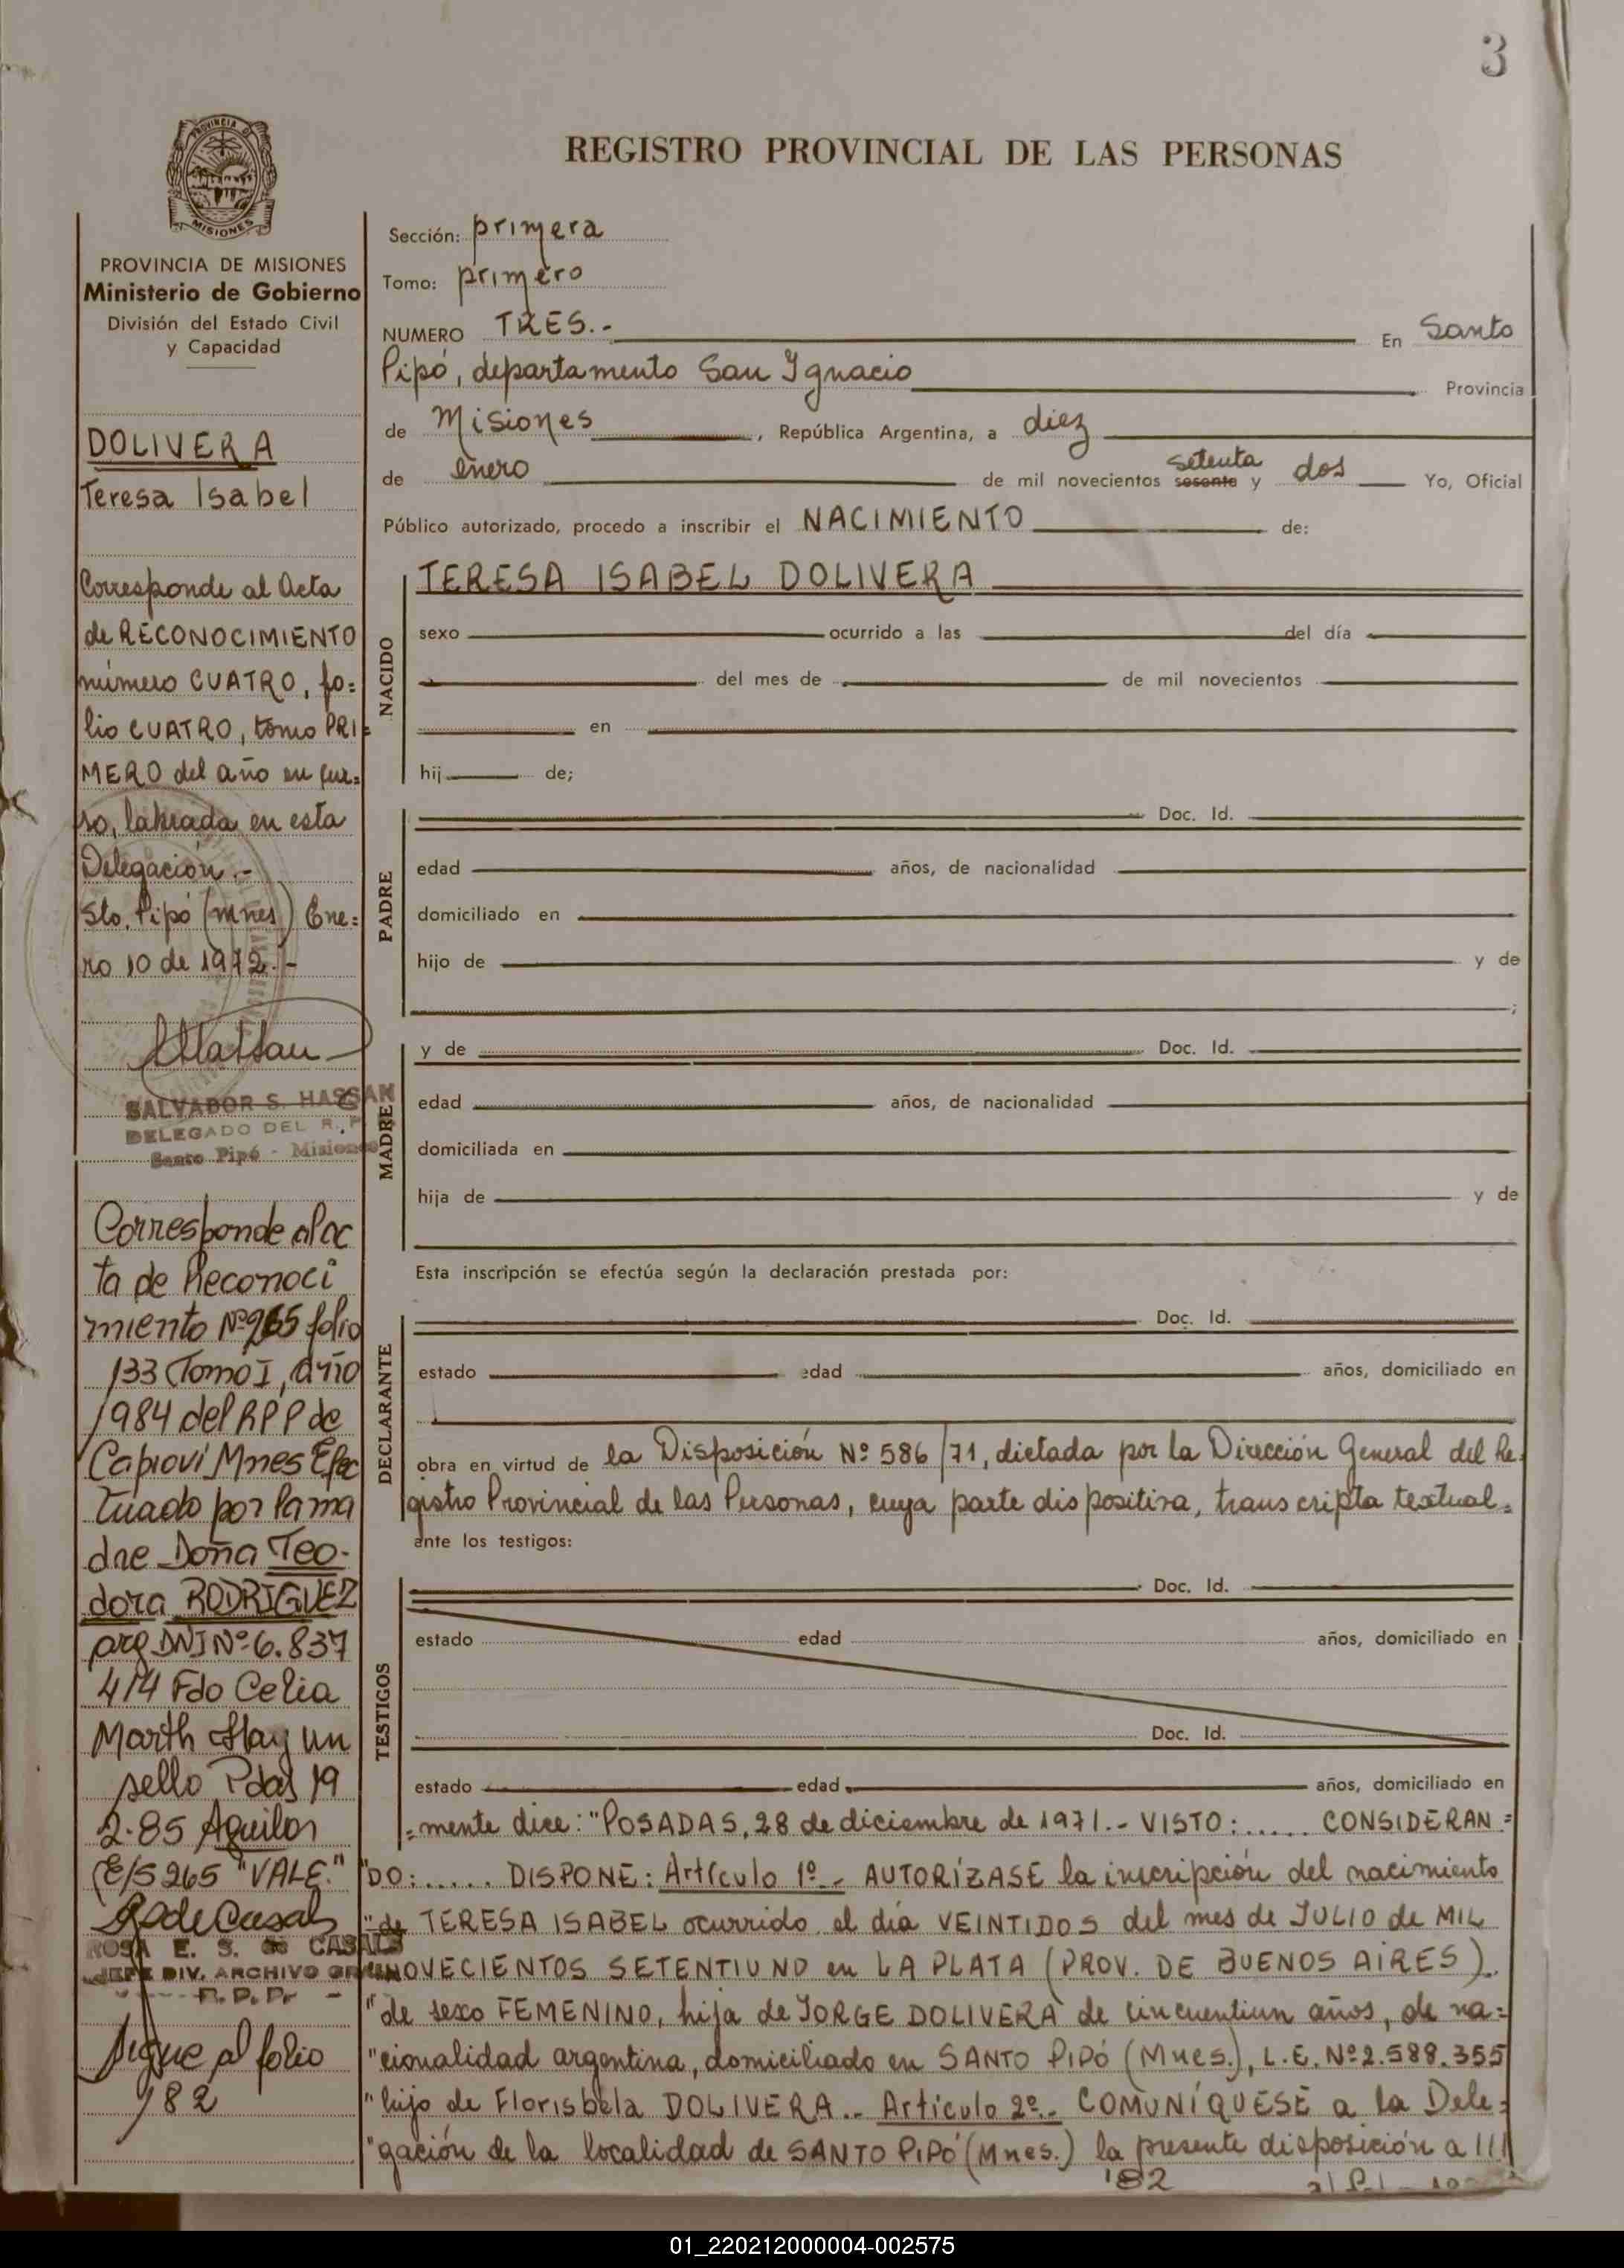 3
PROVINCIA DE
MISIONES
REGISTRO PROVINCIAL DE LAS PERSONAS
PROVINCIA DE MISIONES
Ministerio de Gobierno
División del Estado Civil
y Capacidad
DOLIVERA
Teresa Isabel
Corresponde al Acta
de RECONOCIMIENTO
número CUATRO, fo=
lio CUATRO, tomo PRI=
MERO del año en cur=
so, labrada en esta
Delegación.-
Sto. Pipó (Mnes) Ene=
ro 10 de 1972.-
SALVADOR S. HASSAN
DELEGADO DEL R. P.
Santo Pipó - Misiones
Corresponde al ac
ta de Reconoci
miento Nº 265 folio
133 Tomo I, año
1984 del RPP de
Capiovi Mnes Efec
tuado por la ma
dre Doña Teo-
dora RODRIGUEZ
arg DNI Nº 6.837
414 Fdo Celia
Marth Hay un
sello Pdas 19
2-85 Aguilar
(E/S 265 "VALE."
ROSA E. S. de CASALS
JEFE DIV. ARCHIVO GRAL
R.P.P.
Sigue al folio
182
Sección: primera
Tomo: primero
NUMERO TRES.- En Santo
Pipó, departamento San Ignacio Provincia
de Misiones, República Argentina, a diez
de enero de mil novecientos sesenta setenta y dos Yo, Oficial
Público autorizado, procedo a inscribir el NACIMIENTO de:
NACIDO
TERESA ISABEL DOLIVERA
sexo ocurrido a las del día
del mes de de mil novecientos
en
hij de;
PADRE
Doc. Id.
edad años, de nacionalidad
domiciliado en
hijo de y de
;
MADRE
y de Doc. Id.
edad años, de nacionalidad
domiciliada en
hija de y de
Esta inscripción se efectúa según la declaración prestada por:
DECLARANTE
Doc. Id.
estado edad años, domiciliado en
obra en virtud de la Disposición Nº 586/71, dictada por la Dirección General del Re-
gistro Provincial de las Personas, cuya parte dispositiva, transcripta textual=
ante los testigos:
TESTIGOS
Doc. Id.
estado edad años, domiciliado en
Doc. Id.
estado edad años, domiciliado en
=mente dice: "POSADAS, 28 de diciembre de 1971.- VISTO:..... CONSIDERAN=
"DO:..... DISPONE: Artículo 1º.- AUTORÍZASE la inscripción del nacimiento
"de TERESA ISABEL ocurrido el día VEINTIDOS del mes de JULIO de MIL
NOVECIENTOS SETENTIUNO en LA PLATA (PROV. DE BUENOS AIRES).
"de sexo FEMENINO, hija de JORGE DOLIVERA de cincuentiun años, de na=
"cionalidad argentina, domiciliado en SANTO PIPÓ (Mnes.), L.E. Nº 2.588.355
"hijo de Florisbela DOLIVERA.- Artículo 2º.- COMUNÍQUESE a la Dele=
"gación de la localidad de SANTO PIPÓ (Mnes.) la presente disposición a ///
182
01_220212000004-002575